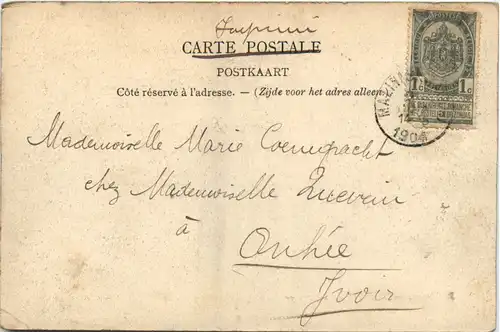 Imprimé
CARTE POSTALE
POSTKAART
Côté réservé à l'adresse. — (Zijde voor het adres alleen
1c 1c
1904
Mademoiselle Marie Coenegracht
chez Mademoiselle
à
Onhée
Yvoir